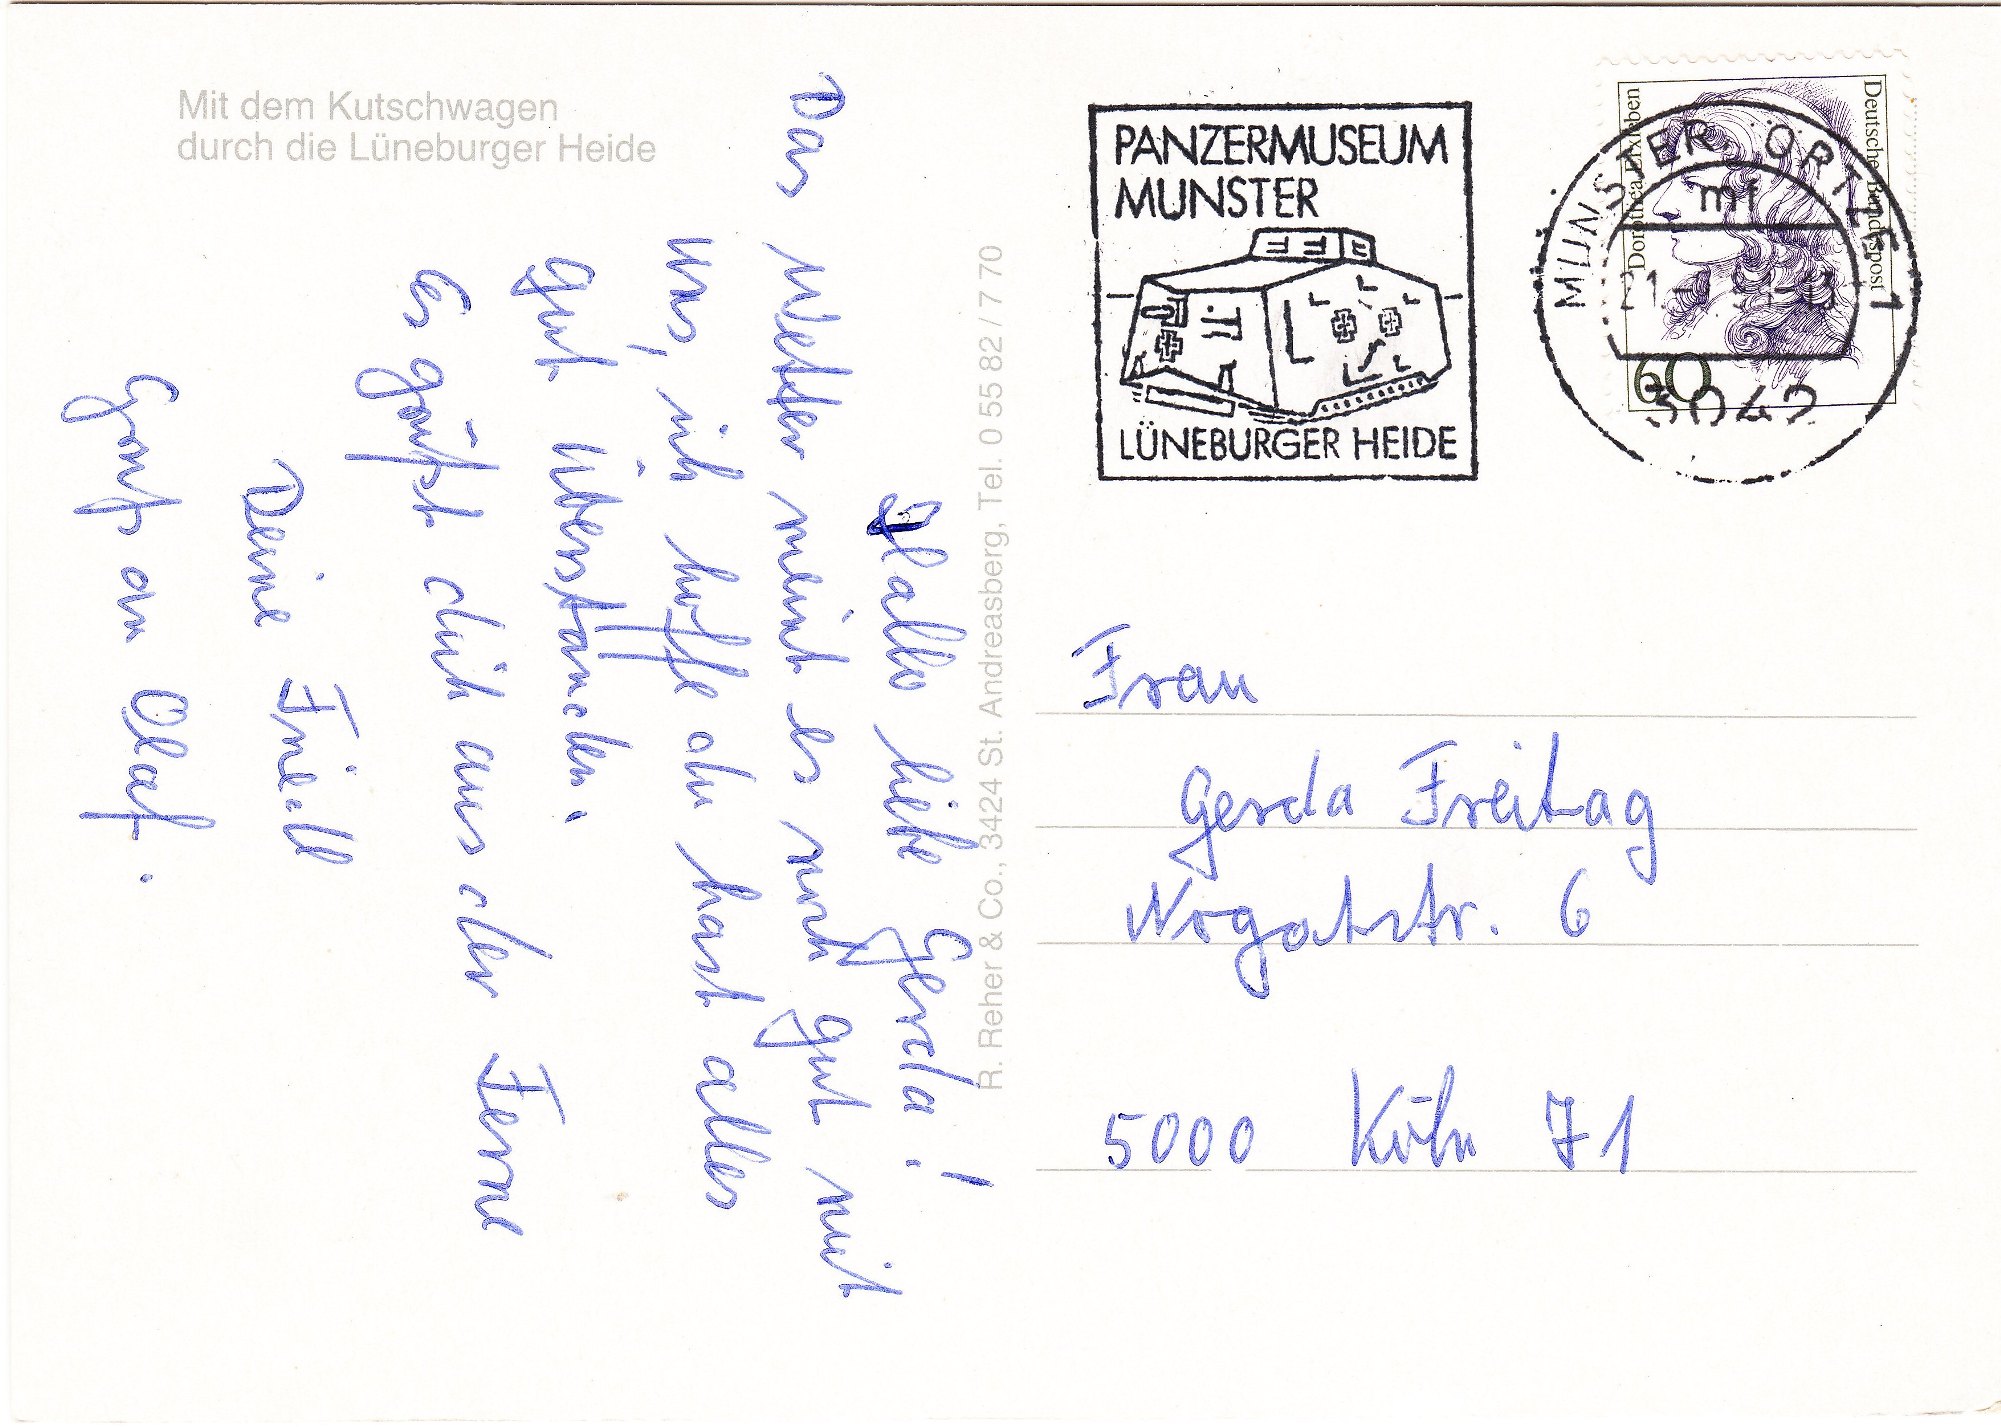 Mit dem Kutschwagen
durch die Lüneburger Heide
Hallo liebe Gerda!
Das Wetter meint es noch gut mit
uns, ich hoffe du hast alles
gut überstanden.
Es grüßt dich aus der Ferne
Deine Friedl
Gruß an Olaf.
R. Reher & Co., 3424 St. Andreasberg, Tel. 0 55 82 / 7 70
PANZERMUSEUM
MUNSTER
LÜNEBURGER HEIDE
Deutsche Bundespost
Dorothea Erxleben
60
MUNSTER, ÖRTZE 1
mf
3042
Frau
Gerda Freitag
Nogatstr. 6
5000 Köln 71